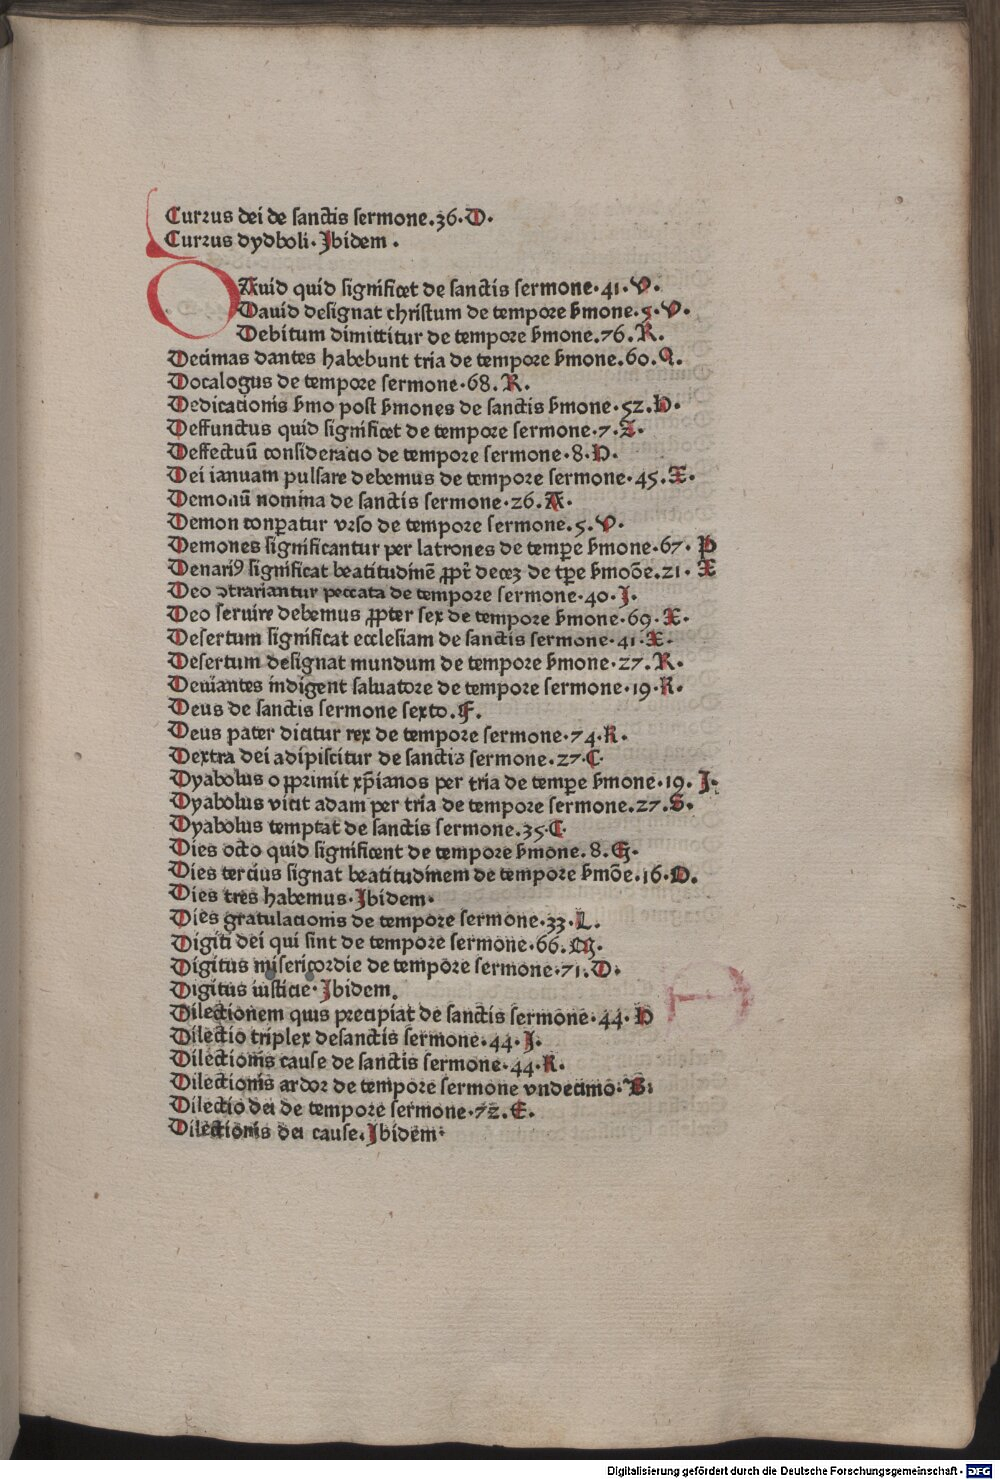 Currus dei de sanctis sermone.36.D.
Currus dydboli.Ibidem.
DAuid quid significet de sanctis sermone.41.V.
Dauid designat christum de tempore ẜmone.5.V.
Debitum dimittitur de tempore ẜmone.76.R.
Decimas dantes habebunt tria de tempore ẜmone.60.Q.
Docalogus de tempore sermone.68.R.
Dedicationis ẜmo post ẜmones de sanctis ẜmone.52.H.
Deffunctus quid significet de tempore sermone.7.Z.
Deffectuū consideratio de tempore sermone.8.H.
Dei ianuam pulsare debemus de tempore sermone.45.X.
Demonū nomina de sanctis sermone.26.A.
Demon conꝑatur vrso de tempore sermone.5.V.
Demones significantur per latrones de temꝑe ẜmone.67.P
Denariꝰ significat beatitudinē ꝓpt̄ decez de tꝑe ẜmoōe.21.X
Deo ↄtrariantur peccata de tempore sermone.40.I.
Deo seruire debemus ꝓpter sex de tempore ẜmone.69.X.
Desertum significat ecclesiam de sanctis sermone.41.X.
Desertum designat mundum de tempore ẜmone.27.R.
Deuiantes indigent saluatore de tempore sermone.19.R.
Deus de sanctis sermone sexto.F.
Deus pater dicitur rex de tempore sermone.74.R.
Dextra dei adipiscitur de sanctis sermone.27.C.
Dyabolus opprimit xp̄ianos per tria de temꝑe ẜmone.19.I.
Dyabolus vicit adam per tria de tempore sermone.27.S.
Dyabolus temptat de sanctis sermone.35.C.
Dies octo quid significent de tempore ẜmone.8.G.
Dies tercius signat beatitudinem de tempore ẜmōe.16.O.
Dies tres habemus.Ibidem.
Dies gratulationis de tempore sermone.33.L.
Digiti dei qui sint de tempore sermone.66.M.
Digitus misericordie de tempore sermone.71.D.
Digitus iusticie.Ibidem.
Dilectionem quis precipiat de sanctis sermone.44.H
Dilectio triplex desanctis sermone.44.I.
Dilectionis cause de sanctis sermone.44.K.
Dilectionis ardor de tempore sermone vndecimo.B.
Dilectio dei de tempore sermone.72.E.
Dilectionis dei cause.Ibidem.
Digitalisierung gefördert durch die Deutsche Forschungsgemeinschaft - DFG